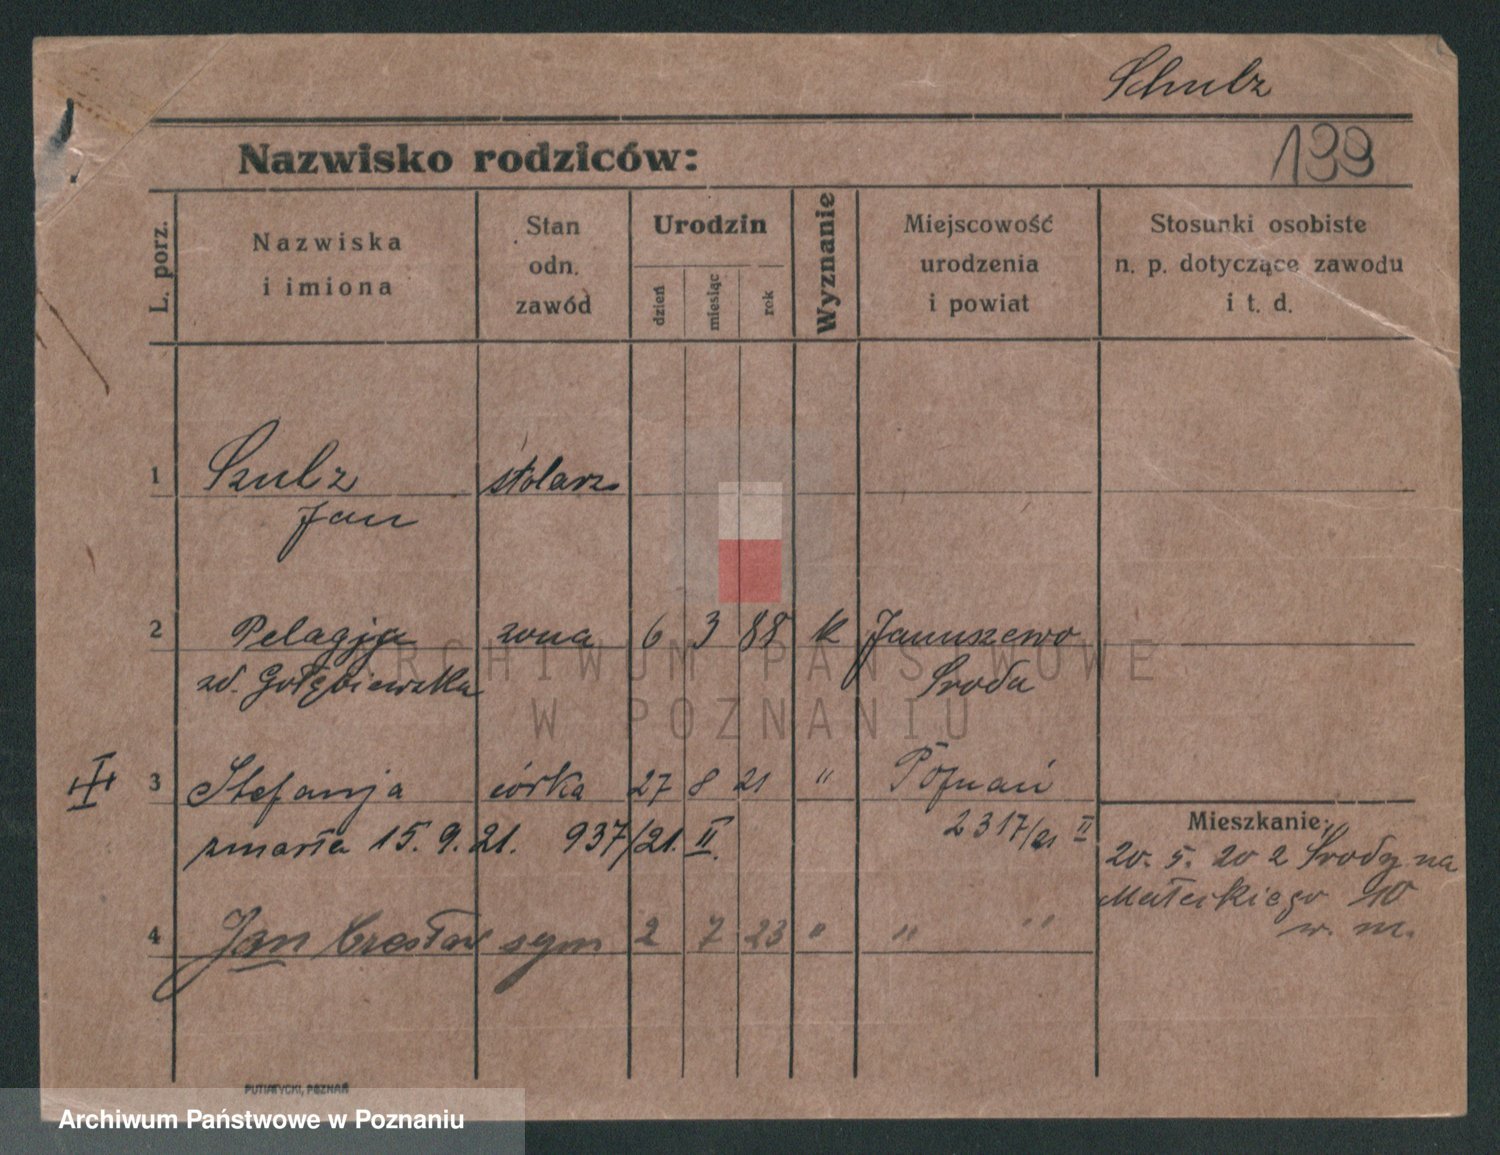 Schulz
139
Nazwisko rodziców:
L. porz.
Nazwiska
i imiona
Stan
odn.
zawód
Urodzin
dzień
miesiąc
rok
Wyznanie
Miejscowość
urodzenia
i powiat
Stosunki osobiste
n. p. dotyczące zawodu
i t. d.
1 Szulz stolarz
Jan
2 Pelagja żona 6 3 88 k Januszewo
zd. Gołębiewska Sroda
3 Stefanja córka 27 8 21 " Poznań
zmarła 15. 9. 21. 937/21. II. 2317/21 II
Mieszkanie:
20. 5. 20 z Srody na
10
w. m.
4 Jan Czesław syn 2 7 23 " " "
ARCHIWUM PAŃSTWOWE
W POZNANIU
PUTIATYCKI, POZNAŃ
Archiwum Państwowe w Poznaniu